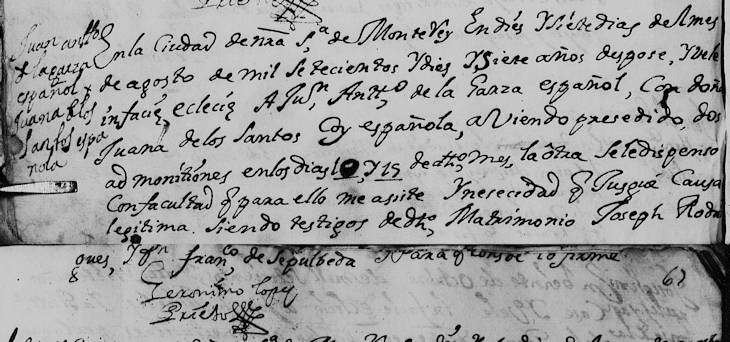 Prieto
Juan antto
de la garza
español y
Juana de los
Santos espa
nola
En la Ciudad de nra Sa de MonteRey En diés Y Siéte dias del mes
de agosto de mil Setecientos Y diés Y Siete años despose, Y Vele
infacie, eclecie A Jun Antto de la Garza español, Con doña
Juana de los Santos Coy española, aViendo presedido, dos
admonitiónes en los dias Y 15 de dho mes, la ôtra Se le dispenso
Con facultad q para ello me asiste Y nesecidad q Jusgué Causa
legitima. Siendo testigos de dho Matrimonio Joseph Rodri
gues, Y Franco de Sepulbeda Y Para q Conste lo firme
Jeronimo Lopez
Prieto
61